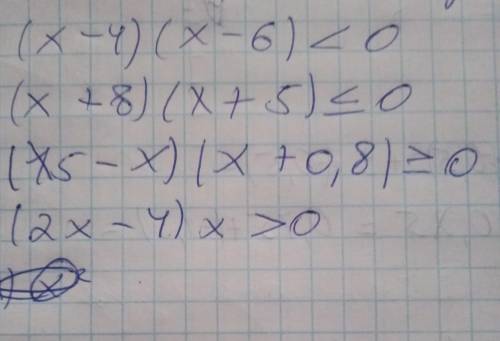 (x-4)(x-6)<0
(x+8)(x+5)≤0
(5-x)(x+0,8)≥0
(2x-4)x>0